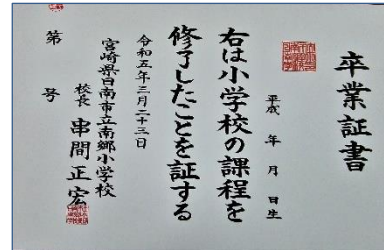 卒業証書
平成　年　月　日生
右は小学校の課程を
修了したことを証する
令和五年三月二十三日
宮崎県日南市立南郷小学校
校長　串間正宏
第　号